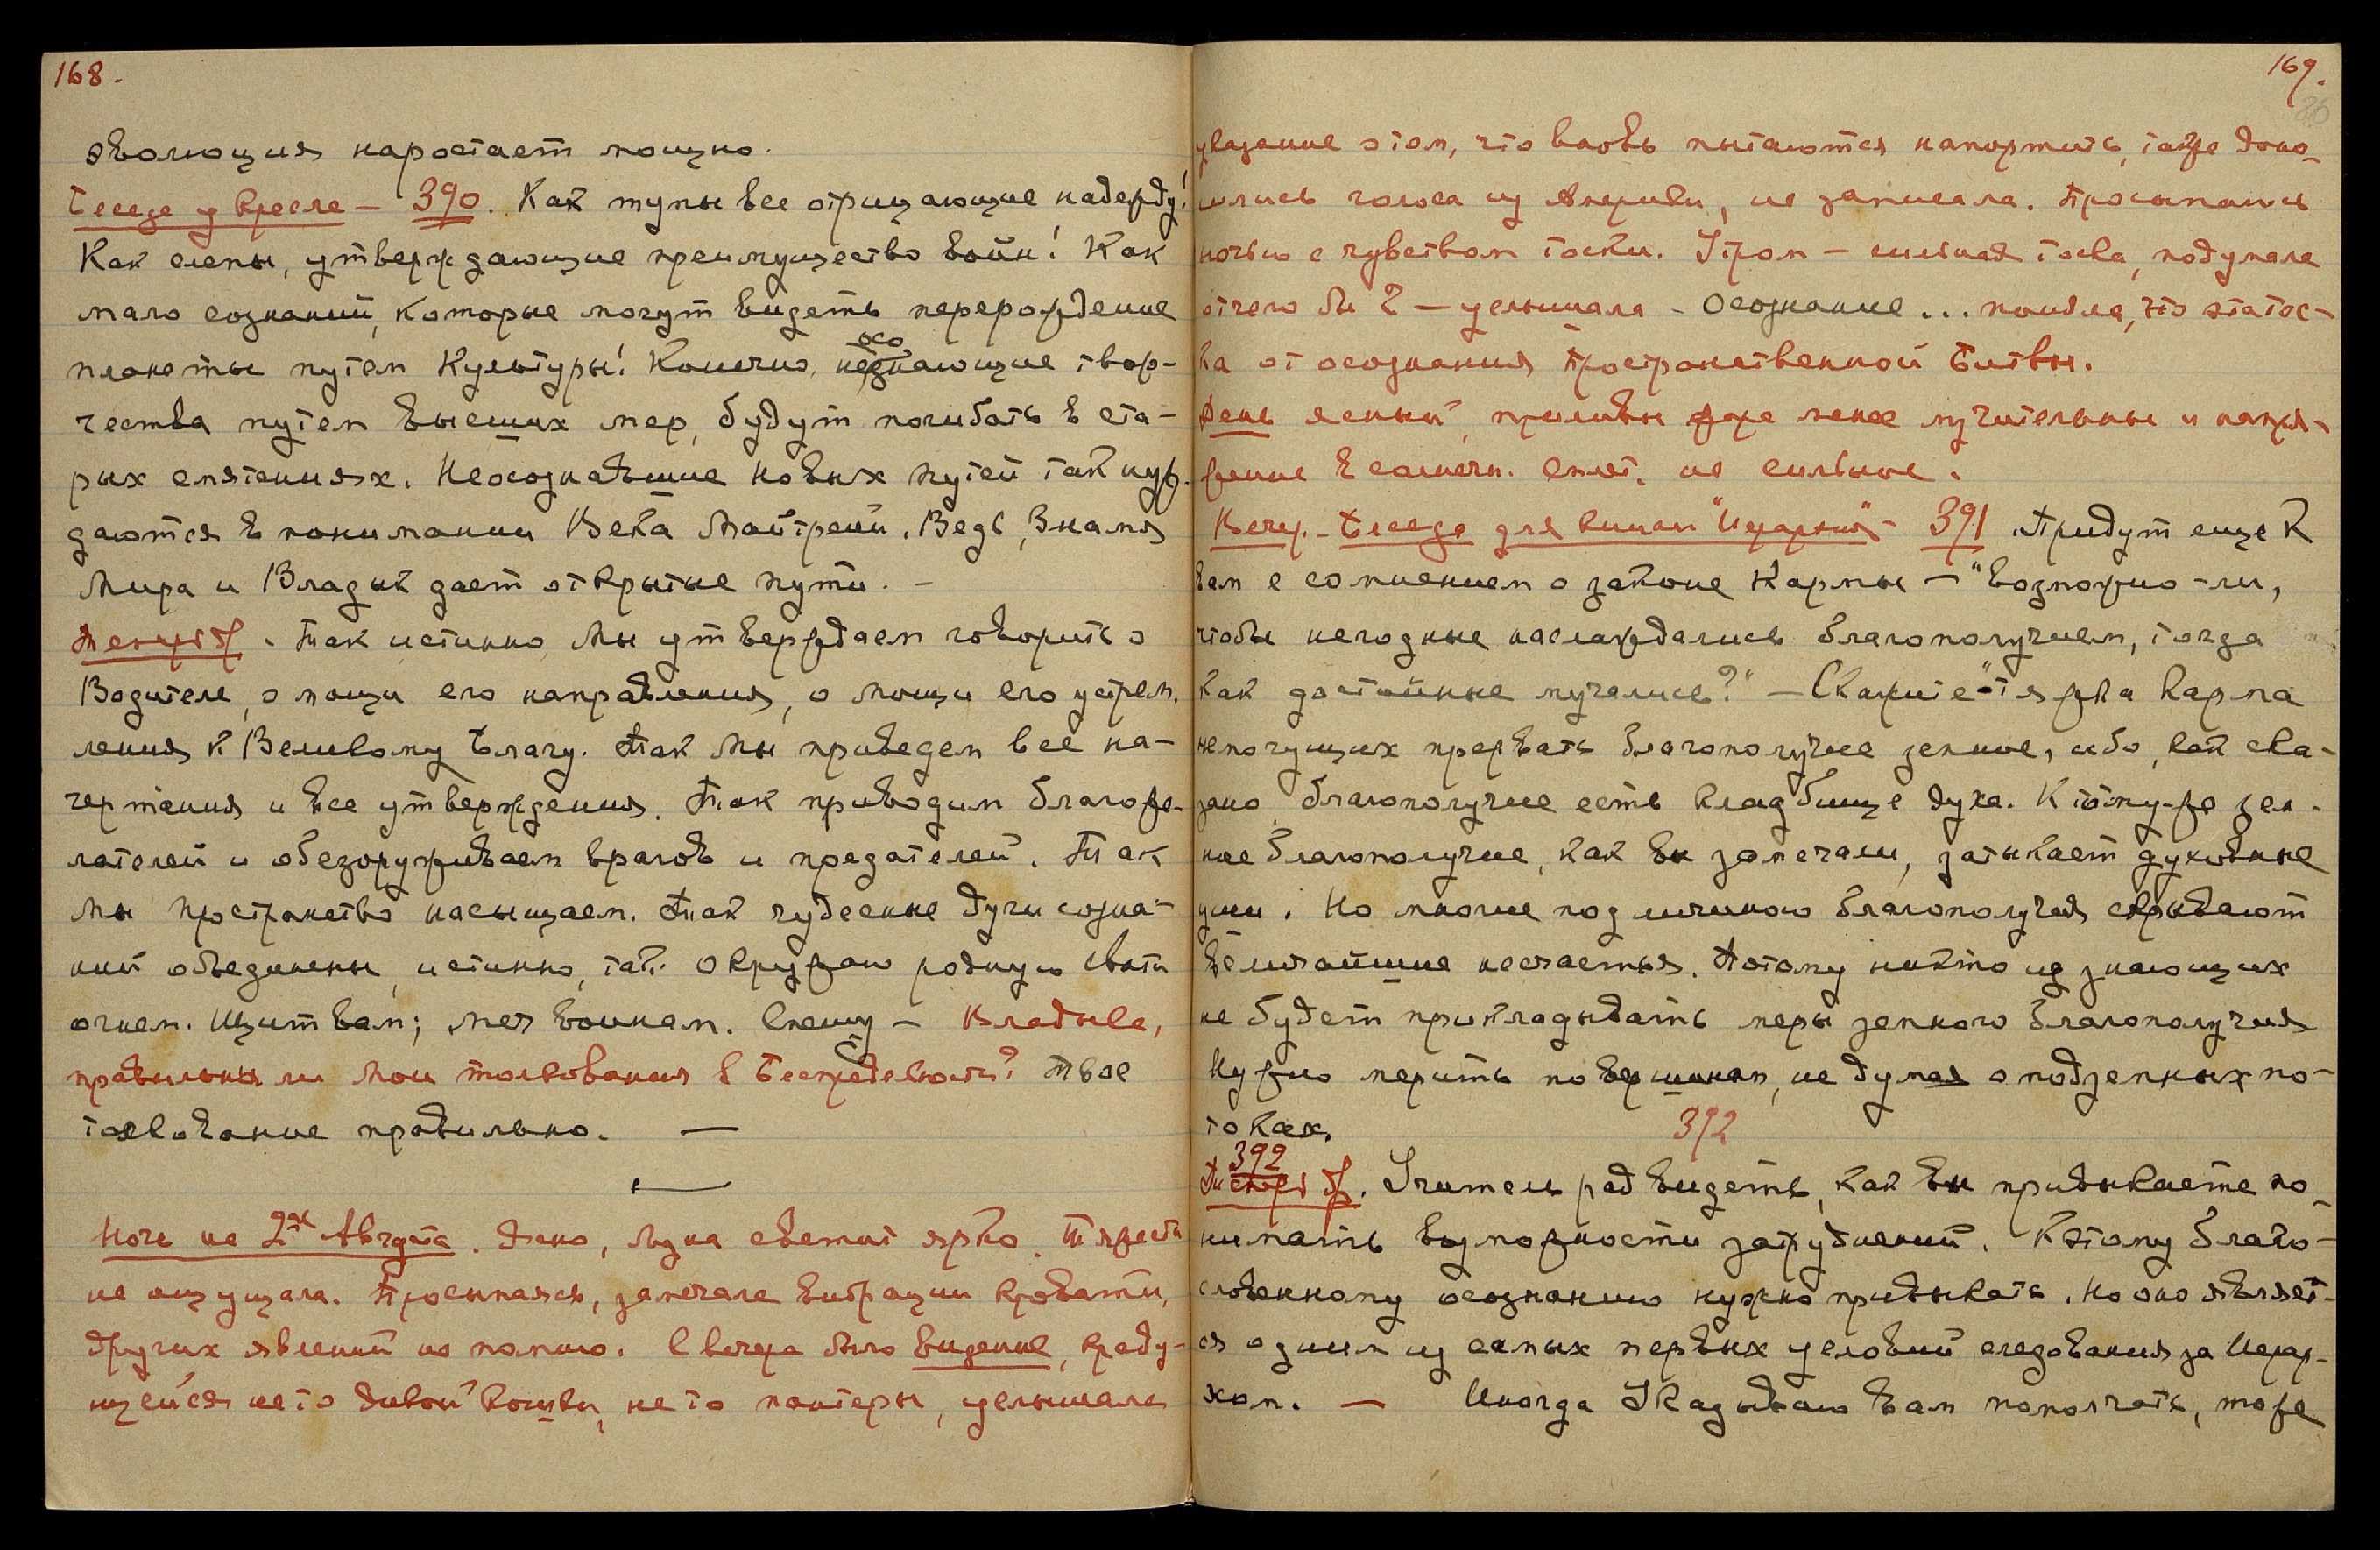 168.
эволюция наростает мощно.
Беседа у кресла – 390. Как тупы все отрицающие надежду!
Как слепы, утверждающие преимущество войн! Как
мало сознаний, которые могут видеть перерождение
планеты путем Культуры! Конечно, не осознающие твор-
чества путем высших мер, будут погибать в ста-
рых смятениях. Неосознавшие новых путей так нуж-
даются в понимании Века Майтрейи. Ведь, Знамя
Мира и Владык дает открытые пути. –
. Так истинно Мы утверждаем говорить о
Водителе, о мощи его направления, о мощи его устрем-
ления к Великому Благу. Так Мы приведем все на-
чертания и все утверждения. Так приводим благоже-
лателей и обезоруживаем врагов и предателей. Так
Мы пространство насыщаем. Так чудесные дуги созна-
ний объединены, истинно, так. Окружаю родную Свати
огнем. Щит вам; меч воинам. Спешу – Владыка,
правильны ли мои толкования в Беспредельности? Твое
толкование правильно. —
Ночь на 2ое Августа. Ясно, луна светит ярко. Тяжести
не ощущала. Просыпаясь, замечала вибрации кровати,
других явлений не помню. С вечера было видение, краду-
щейся не то дикой кошки, не то пантеры, услышала
169.
86
указание о том, что вновь пытаются напортить, также доно-
сились голоса из Америки, не записала. Просыпались
ночью с чувством тоски. Утром – сильная тоска, подумала
отчего бы? – услышала – Осознание... поняла, что эта тос-
ка от осознания Пространственной Битвы.
День ясный, приливы жара менее мучительны и напря-
жение в солнечн. сплет. не сильное.
Вечер. – Беседа для книги "Иерархия" – 391 Придут еще к
вам с сомнением о законе Кармы – "возможно-ли,
чтобы негодные наслаждались благополучием, тогда
как достойные мучались?" – Скажите – "тяжка карма
немогущих прервать благополучие земное, ибо, как ска-
зано, благополучие есть кладбище духа. К тому-же зем-
ное благополучие, как вы замечали, затыкает духовные
уши. Но многие под личиною благополучия скрывают
величайшие несчастья. Потому никто из знающих
не будет прикладывать меры земного благополучия
Нужно мерить по вершинам, не думая о подземных по-
токах.
392
392
. Учитель рад видеть, как вы привыкаете по-
нимать возможности затруднений. К этому благо-
словенному осознанию нужно привыкать. Но оно являет-
ся одним из самых первых условий следования за Иерар-
хом. — Иногда Указываю вам помолчать, тоже